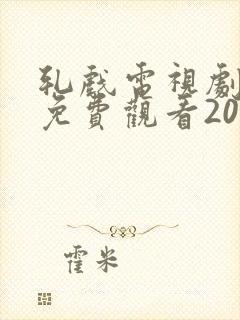 乳戲電視劇
免費觀看20
霍米